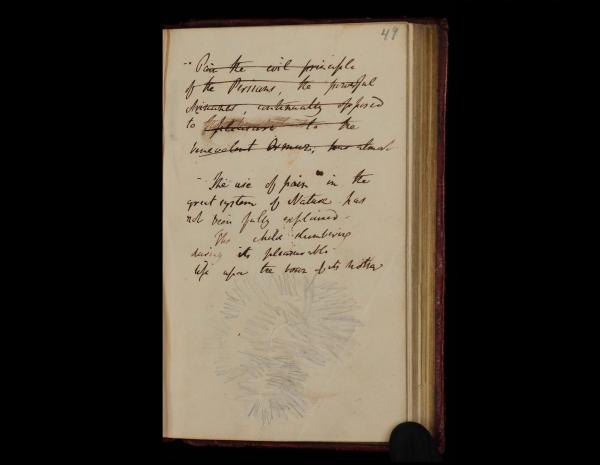 49
Pain the evil principle
of the Persians, the powerful
Arimanes, continually opposed
to pleasure to the
benevolent Ormuz, was almost
The use of pain in the
great system of Nature has
not been fully explained -
The child slumbering
during its pleasurable
life upon the bosom of its Mother